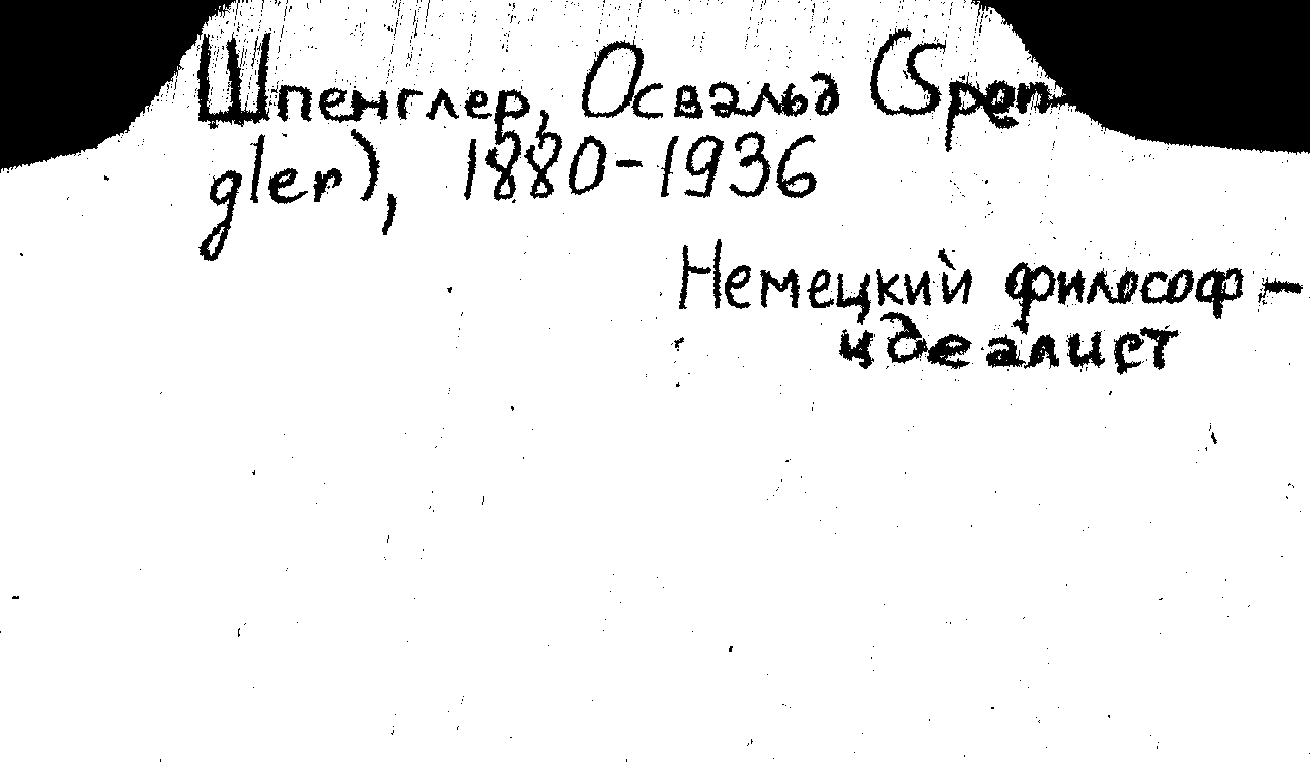 Шпенглер, Освальд (Spen-
gler), 1880-1936
Немецкий философ-
идеалист